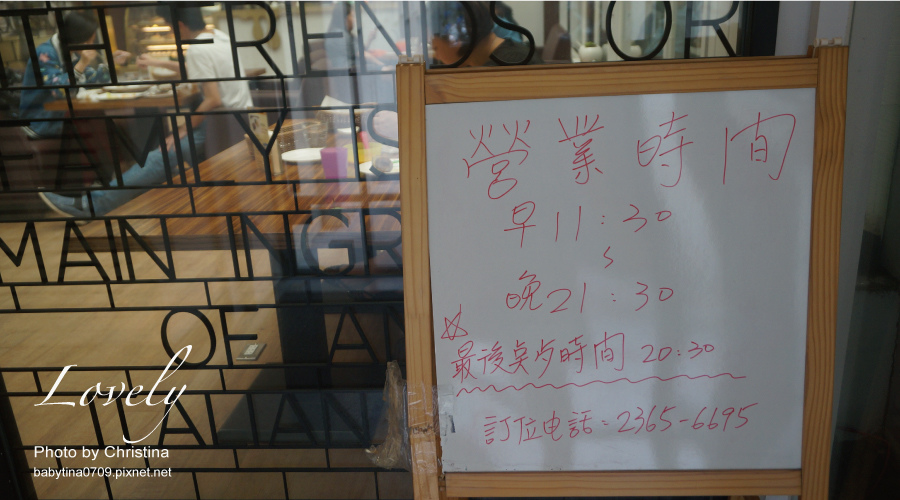 FRIENDS OR
FAMILY
MAIN INGR
OF AN
ITALIAN
營業時間
早11:30
∫
晚21:30
☆最後奌歺時間 20:30
訂位电話:2365-6695
Lovely
Photo by Christina
babytina0709.pixnet.net